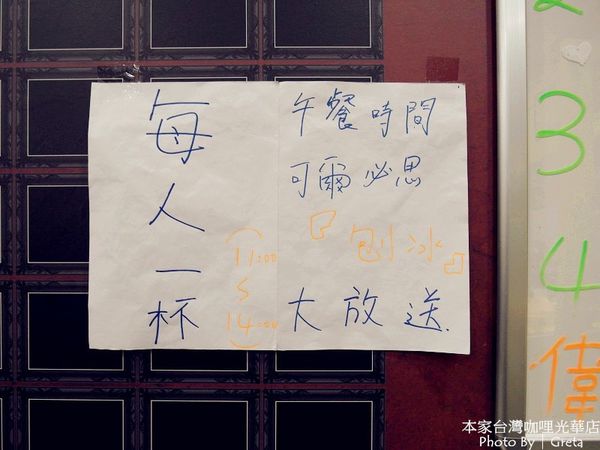 午餐時間
可爾必思
「刨冰」
大放送.
每人一杯
(11:00
∫
14:00)
2
3
4
偉
本家台灣咖哩光華店
Photo By | Greta